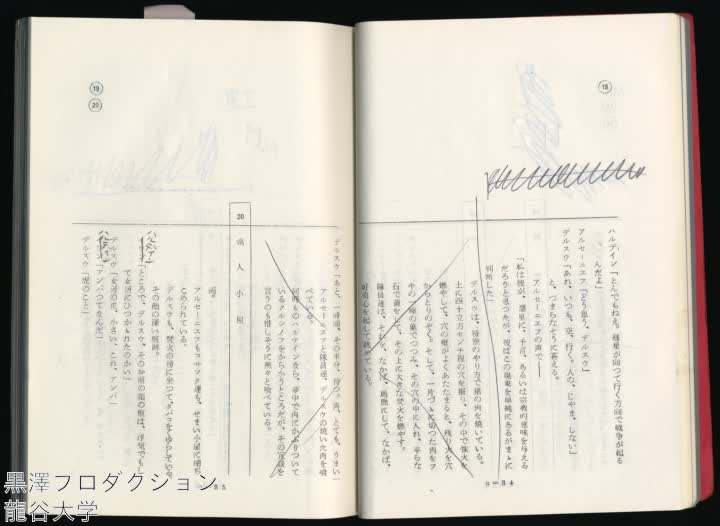 ⑲
ハルデイン「とんでもねえ。彗星が向つて行く方向で戦争が起る
んだよ」
アルセーニエフ「どう思う、デルスウ」
デルスウ「あれ、いつも、空、行く。人の、じやま、しない」
と、つまらなそうに答える。
アルセーニエフの声で――
「私は彼が、彗星に、予言、あるいは宗教的意味を与える
だろうと思つたが、彼はこの現象を単純にあるがまゝに
判断した」
デルスウは、特別のやり方で猪の肉を焼いている。
土に四十立方センチ程の穴を掘り、その中で強火を
燃やして、穴の壁がよくあたたまると、残り火を穴
からとりのぞく。そして、一片づゝに切つた肉をフ
の巣でつつみ、その穴の中に入れ、平らな
石で蓋をして、その上に大きな焚火を燃やす。
隊員達は、それを、なかば、馬鹿にして、なかば、
好奇心を起して眺めている。
B―34
⑲
⑳
デルスウ「あと、一時間、その半分、待つ。肉、とても、うまい」
アルセーニエフと隊員達、デルスウの焼いた肉を喰
べている。
何時ものハルデインなら、夢中で肉にかぶりついて
いるクルシノフをからかうところだが、その冗談を
言うのも惜しそうに黙々と喰べている。
20 猟人小屋
雨。
アルセーニエフもコサツク達も、せまい小屋に降り
こめられている。
デルスウも、焚火の傍に坐つて、タバコをゆらしている。
その頬の深い傷痕。
ハルデイン
「ところで、デルスウ、そのお前の頬の傷は、浮気でもし
て女房にひつかゝれたのかい」
デルスウ「女房の爪、小さい。これ、アンバ」
ハルデイン
「アンバつてなんだ」
デルスウ「虎のこと」
B―35
黒澤プロダクション
龍谷大学